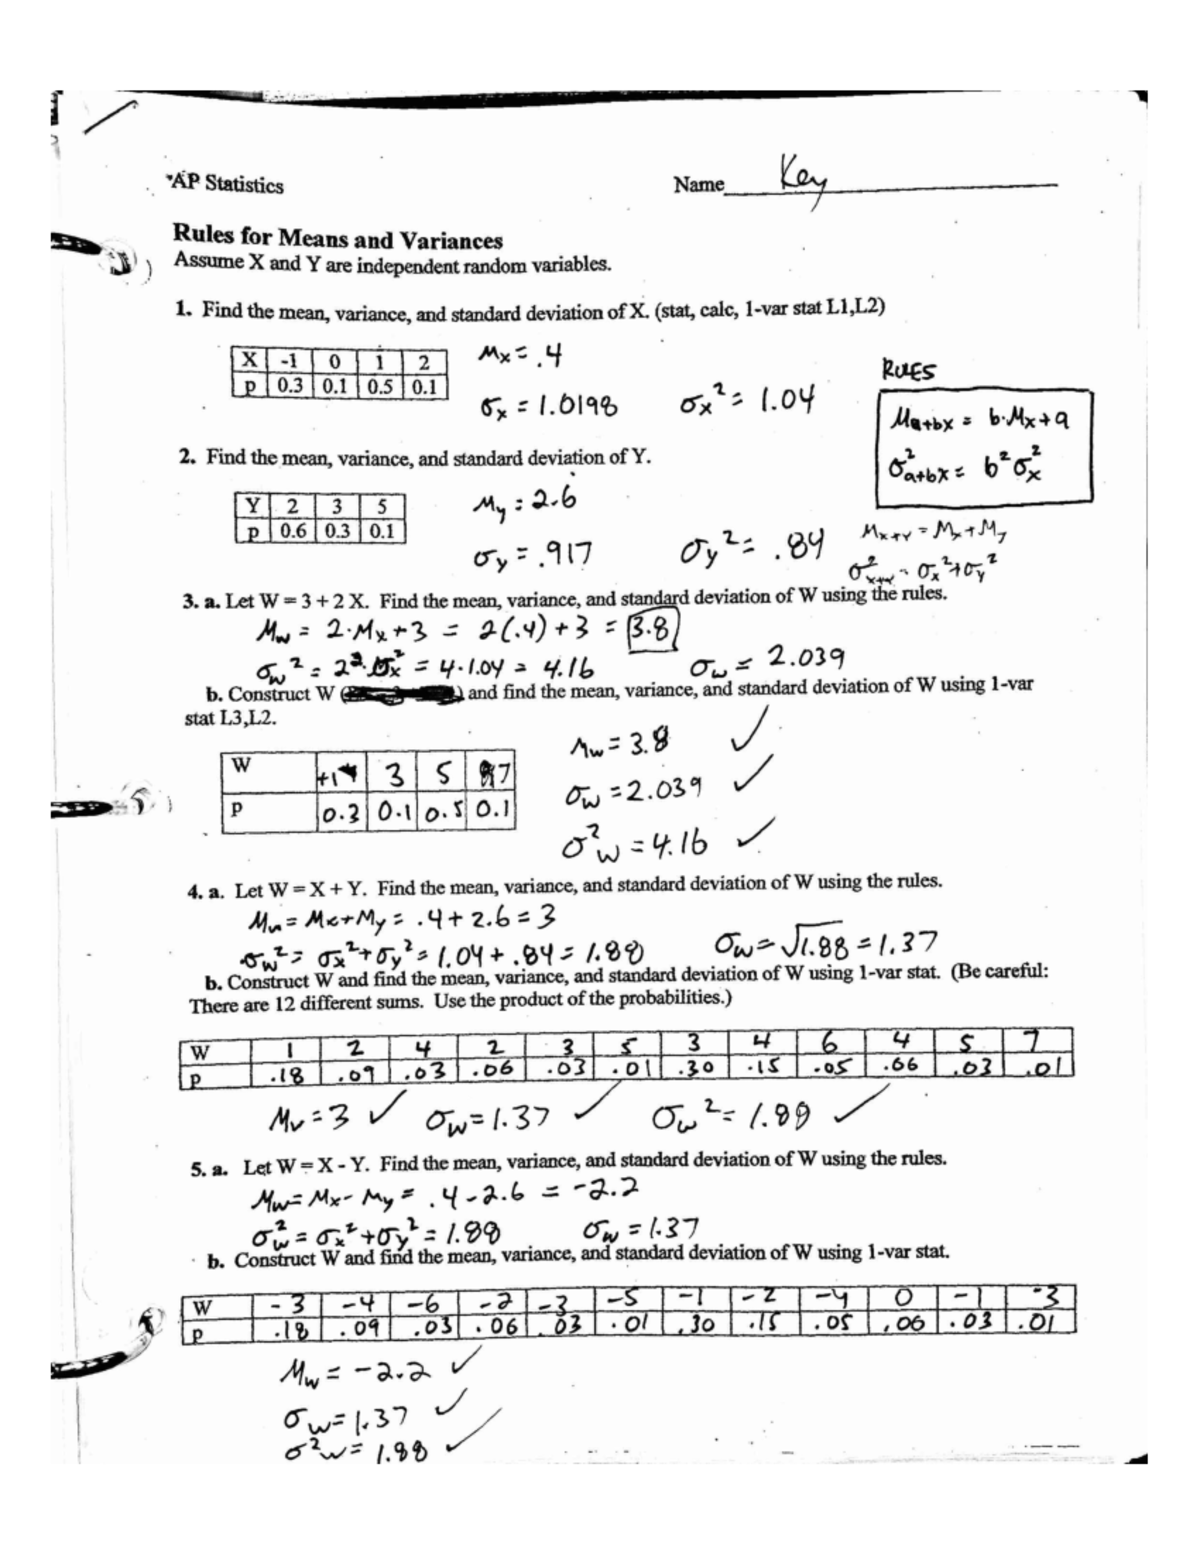 AP Statistics Name Key
Rules for Means and Variances
Assume X and Y are independent random variables.
1. Find the mean, variance, and standard deviation of X. (stat, calc, 1-var stat L1,L2)
X -1 0 1 2
p 0.3 0.1 0.5 0.1
μx = .4
σx = 1.0198 σx² = 1.04
RULES
μa+bx = b·μx+a
σ²a+bx = b²σx²
2. Find the mean, variance, and standard deviation of Y.
Y 2 3 5
p 0.6 0.3 0.1
μy = 2.6
σy = .917 σy² = .84
μx+y = μx+μy
σ²x+y = σx²+σy²
3. a. Let W = 3 + 2 X. Find the mean, variance, and standard deviation of W using the rules.
μw = 2·μx+3 = 2(.4)+3 = 3.8
σw² = 2²·σx² = 4·1.04 = 4.16 σw = 2.039
b. Construct W and find the mean, variance, and standard deviation of W using 1-var
stat L3,L2.
W +1 3 5 7
p 0.3 0.1 0.5 0.1
μw = 3.8 ✓
σw = 2.039 ✓
σ²w = 4.16 ✓
4. a. Let W = X + Y. Find the mean, variance, and standard deviation of W using the rules.
μw = μx+μy = .4 + 2.6 = 3
σw² = σx²+σy² = 1.04 + .84 = 1.88 σw = √1.88 = 1.37
b. Construct W and find the mean, variance, and standard deviation of W using 1-var stat. (Be careful:
There are 12 different sums. Use the product of the probabilities.)
W 1 2 4 2 3 5 3 4 6 4 5 7
p .18 .09 .03 .06 .03 .01 .30 .15 .05 .06 .03 .01
μw = 3 ✓ σw = 1.37 ✓ σw² = 1.88 ✓
5. a. Let W = X - Y. Find the mean, variance, and standard deviation of W using the rules.
μw = μx - μy = .4 - 2.6 = -2.2
σ²w = σx²+σy² = 1.88 σw = 1.37
b. Construct W and find the mean, variance, and standard deviation of W using 1-var stat.
W -3 -4 -6 -2 -3 -5 -1 -2 -4 0 -1 -3
p .18 .09 .03 .06 .03 .01 .30 .15 .05 .06 .03 .01
μw = -2.2 ✓
σw = 1.37 ✓
σ²w = 1.88 ✓